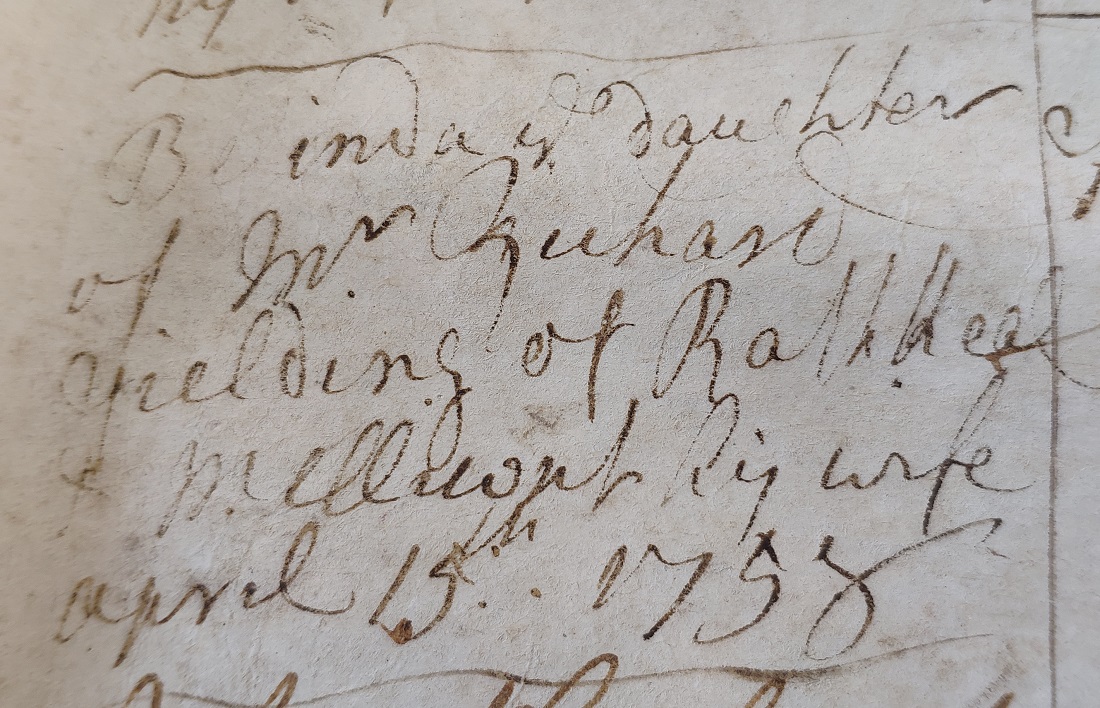 Belinda ye daughter
of Mr Richard
Fielding of Rathkeal
& his wife
april 15th. 1758